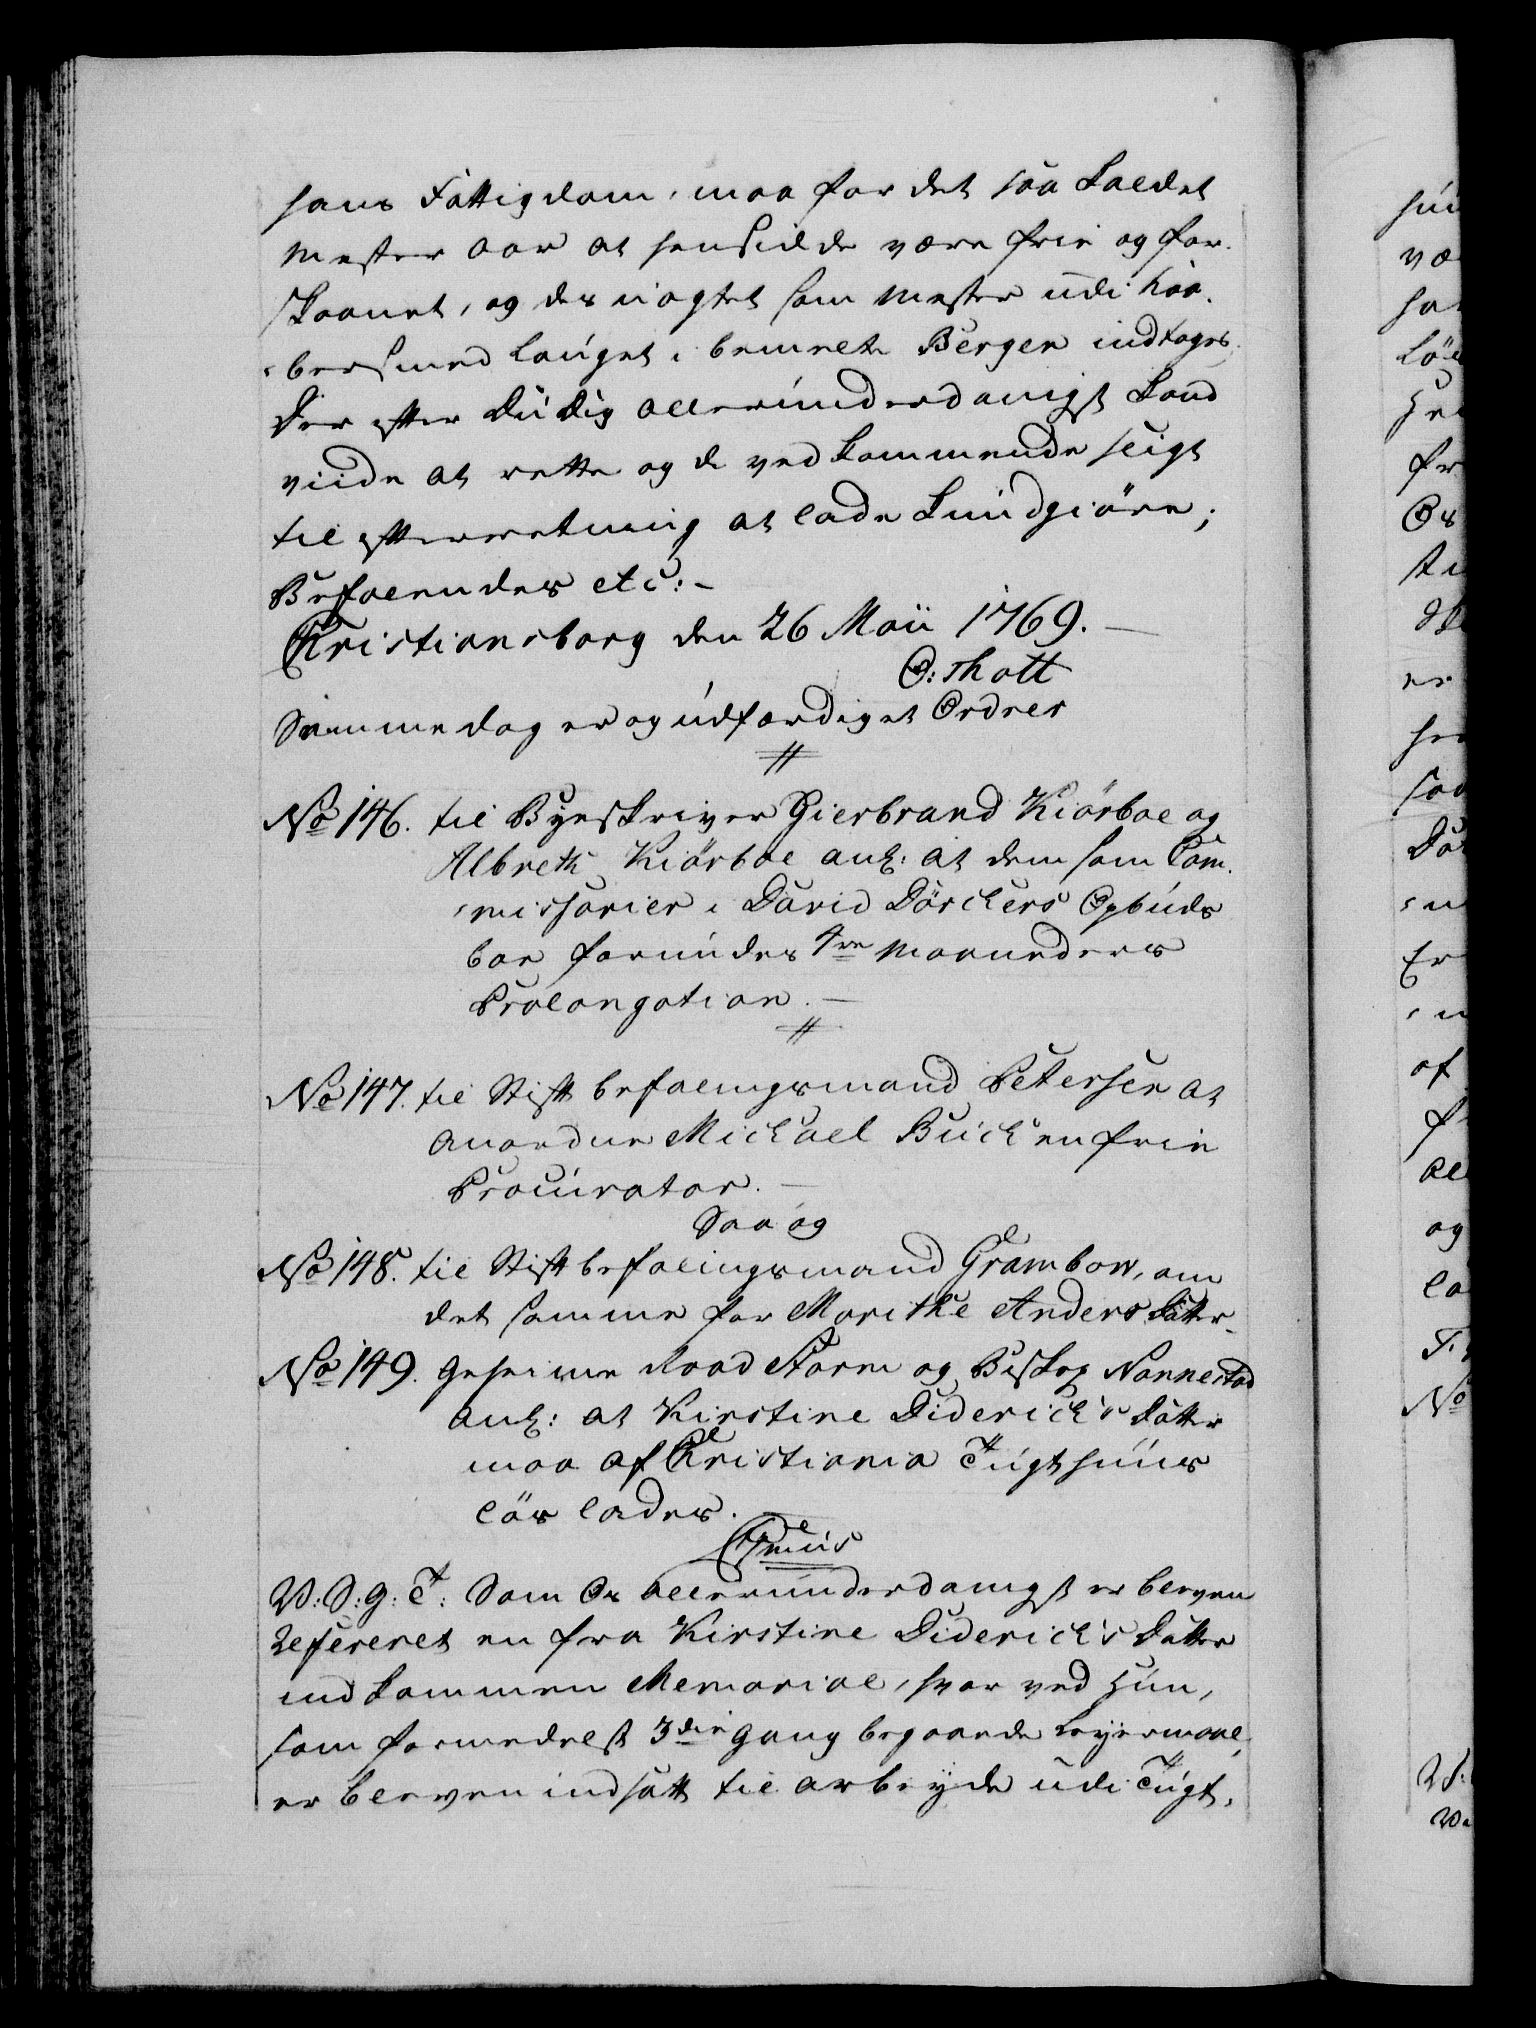 hans Fattigdom, maa for det saa kaldet
Mester aar at hensidde være frie og for-
skaanet, og des uagtet som Mester udi Kaa-
bersmed Lauget i bemelte Bergen indtages.
Der efter Du Dig allerunderdanigst kand
viide at rette og de ved kommende sligt
til efterretning at lade kundgiöre;
Befalendes etc:-
Christiansborg den 26 Maii 1769.
O: Thott
Samme dag er og udfærdiget Ordres
No 146. til Byeskriver Gierbrand Kiörboe og
Albreth Kiörboe anl: at dem som Com-
missarier i David Dörckers Opbuds
boe forundes 4re Maaneders
Prolongation.
No 147. til Stiftbefalingsmand Petersen at
anordne Michael Buck en frie
Procurator.
Saa og
No 148. til Stiftbefalingsmand Grambow, om
det samme for Marithe Anders Datter.
No 149. Geheime Raad Storm og Biskop Nannestad
anl: at Kirstine Diderich's Datter
maa af Christiania Tugthuus
lös lades.
C7mus
V. S. G. T: Som Os allerunderdanigst er bleven
refereret en fra Kirstine Diderich's Datter
ind kommen Memorial, hvor ved hun,
som formedelst 3die gang begaaende Leyermaal
er bleven indsatt til arbeyde udi Tugt-